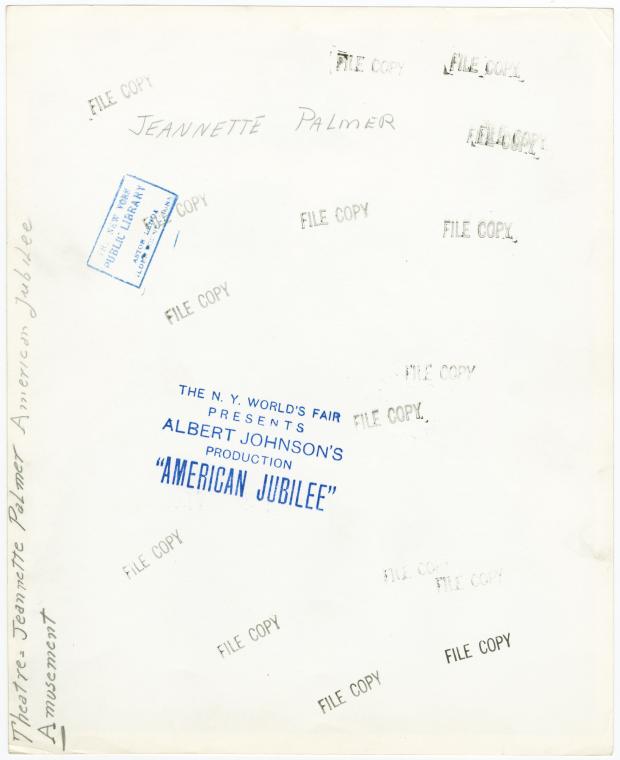 FILE COPY
FILE COPY
FILE COPY
JEANNETTE PALMER
FILE COPY
FILE COPY
THE NEW YORK
PUBLIC LIBRARY
ASTOR LENOX
FILE COPY
FILE COPY
FILE COPY
FILE COPY
FILE COPY
FILE COPY
FILE COPY
THE N. Y. WORLD'S FAIR
PRESENTS
ALBERT JOHNSON'S
PRODUCTION
"AMERICAN JUBILEE"
FILE COPY
FILE COPY
FILE COPY
FILE COPY
FILE COPY
FILE COPY
Theatre = Jeannette Palmer American Jubilee
Amusement